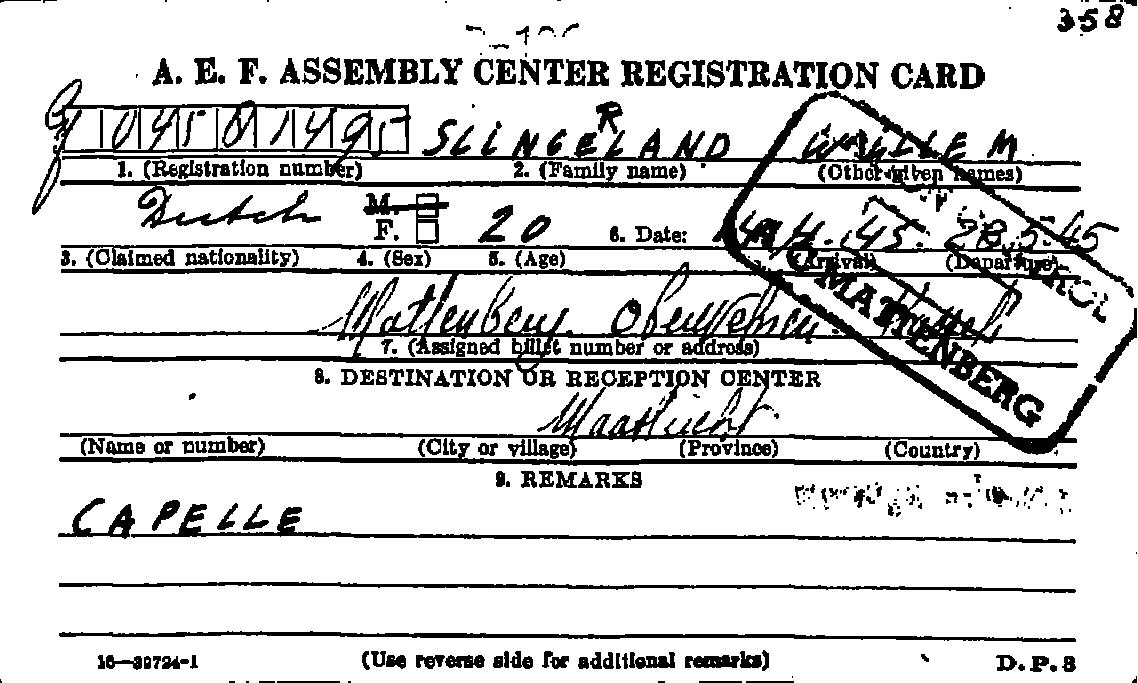 358
A. E. F. ASSEMBLY CENTER REGISTRATION CARD
04581495 SLINGERLAND WILLEM
1. (Registration number) 2. (Family name) (Other given names)
Dutch M. F. 20 6. Date: 14.4.45. 28.5.45
3. (Claimed nationality) 4. (Sex) 5. (Age) (Arrival) (Departure)
Mattenberg. Oberzwehren.
7. (Assigned billet number or address)
MATTENBERG
8. DESTINATION OR RECEPTION CENTER
Maastricht
(Name or number) (City or village) (Province) (Country)
9. REMARKS
CAPELLE
16—39724-1 (Use reverse side for additional remarks) D.P.3